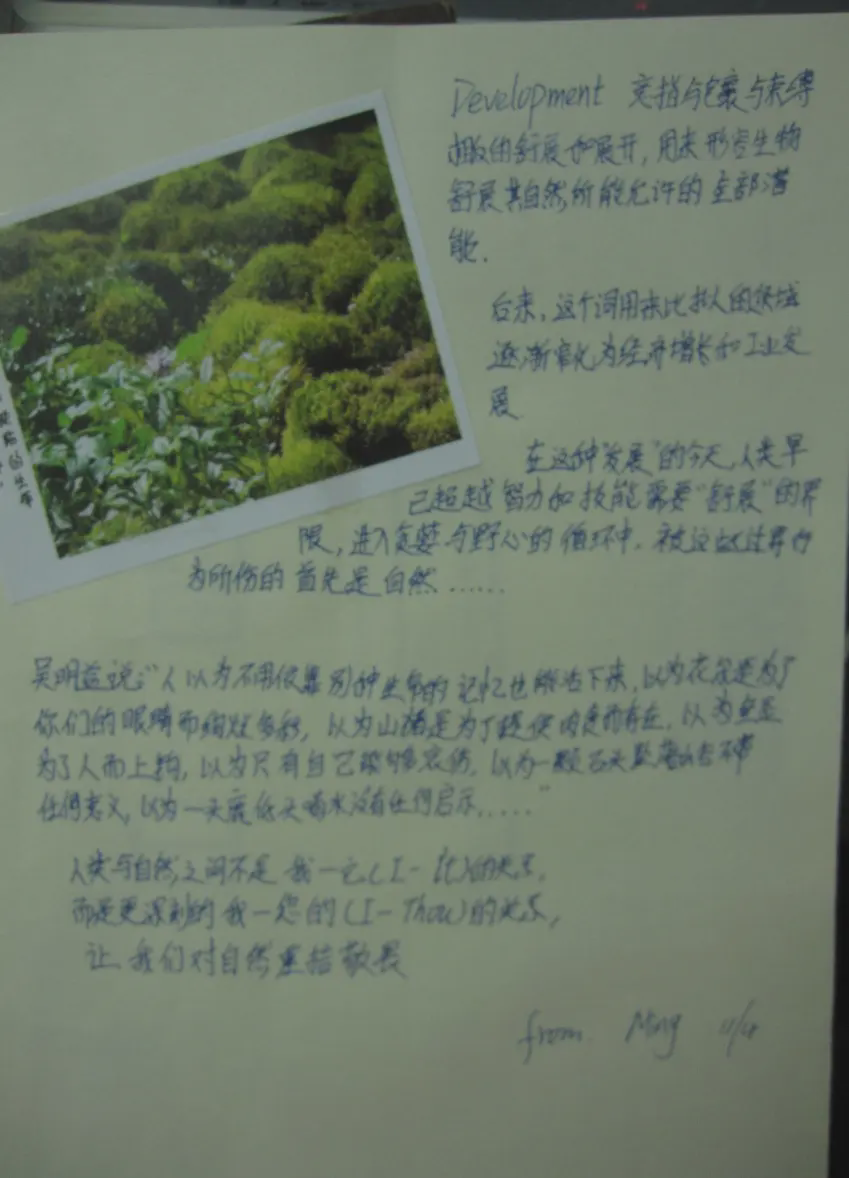 Development 变指与包裹与束缚
相反的舒展和展开，用来形容生物
舒展其自然所能允许的全部潜
能.
后来，这个词用来比拟人的领域
逐渐窄化为经济增长和工业发
展
在这种"发展"的今天，人类早
已超越智力和技能需要"舒展"的界
限，进入贪婪与野心的循环中.
为所伤的首先是自然……
吴明益说："人以为不用依靠别种生命的记忆也能活下来，以为花朵是为了
你们的眼睛而绚烂多彩，以为山猪是为了提供肉食而存在，以为鱼是
为了人而上钩，以为只有自己能够哀伤，以为一颗石头坠落山谷不带
任何意义，以为一头鹿低头喝水没有任何启示……"
人类与自然之间不是我一它(I-It)的关系，
而是更深刻的我一您的(I-Thou)的关系，
让我们对自然重拾敬畏
from Ming
的生命